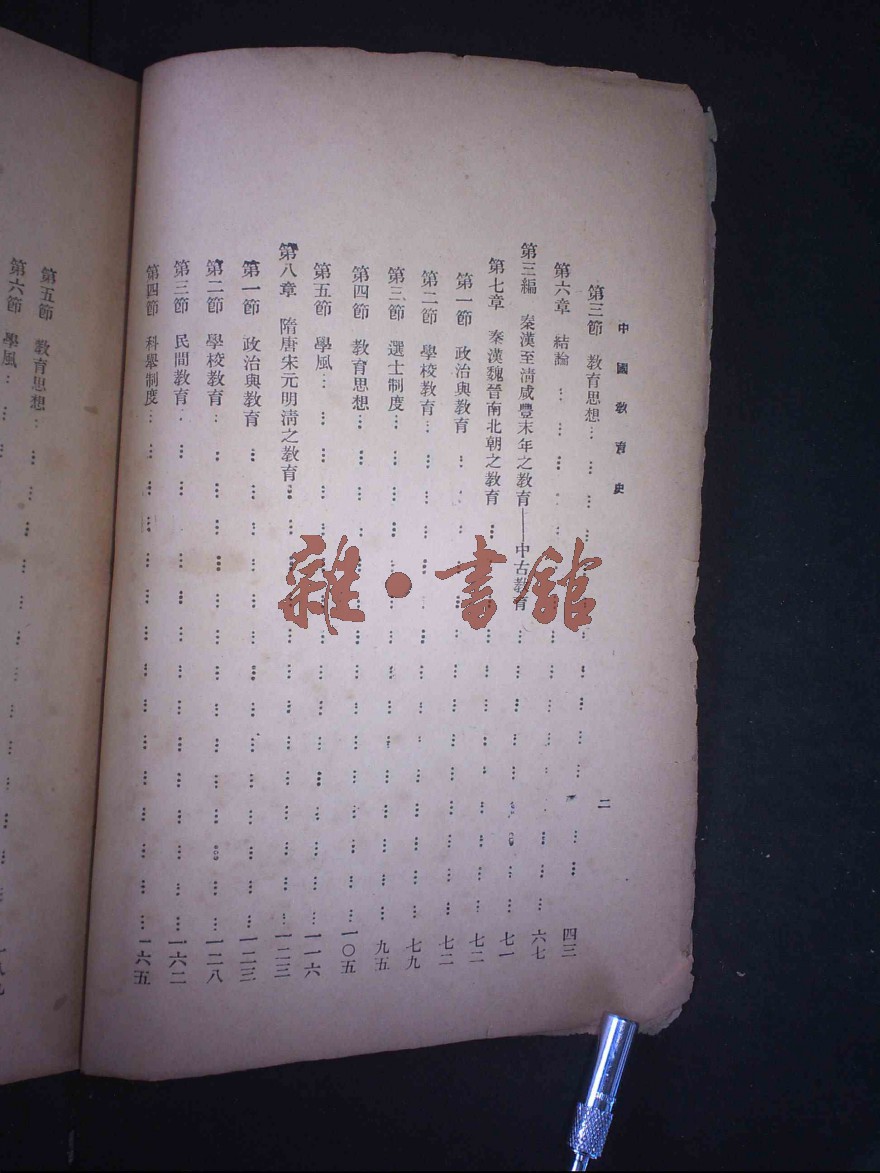 中國教育史 二
第三節 教育思想……四三
第六章 結論……六七
第三編 秦漢至清咸豐末年之教育——中古教育……七一
第七章 秦漢魏晉南北朝之教育……七二
第一節 政治與教育……七二
第二節 學校教育……七九
第三節 選士制度……九五
第四節 教育思想……一〇五
第五節 學風……一一六
第八章 隋唐宋元明清之教育……一二三
第一節 政治與教育……一二三
第二節 學校教育……一二八
第三節 民間教育……一六二
第四節 科舉制度……一六五
第五節 教育思想……
第六節 學風……
雜·書館